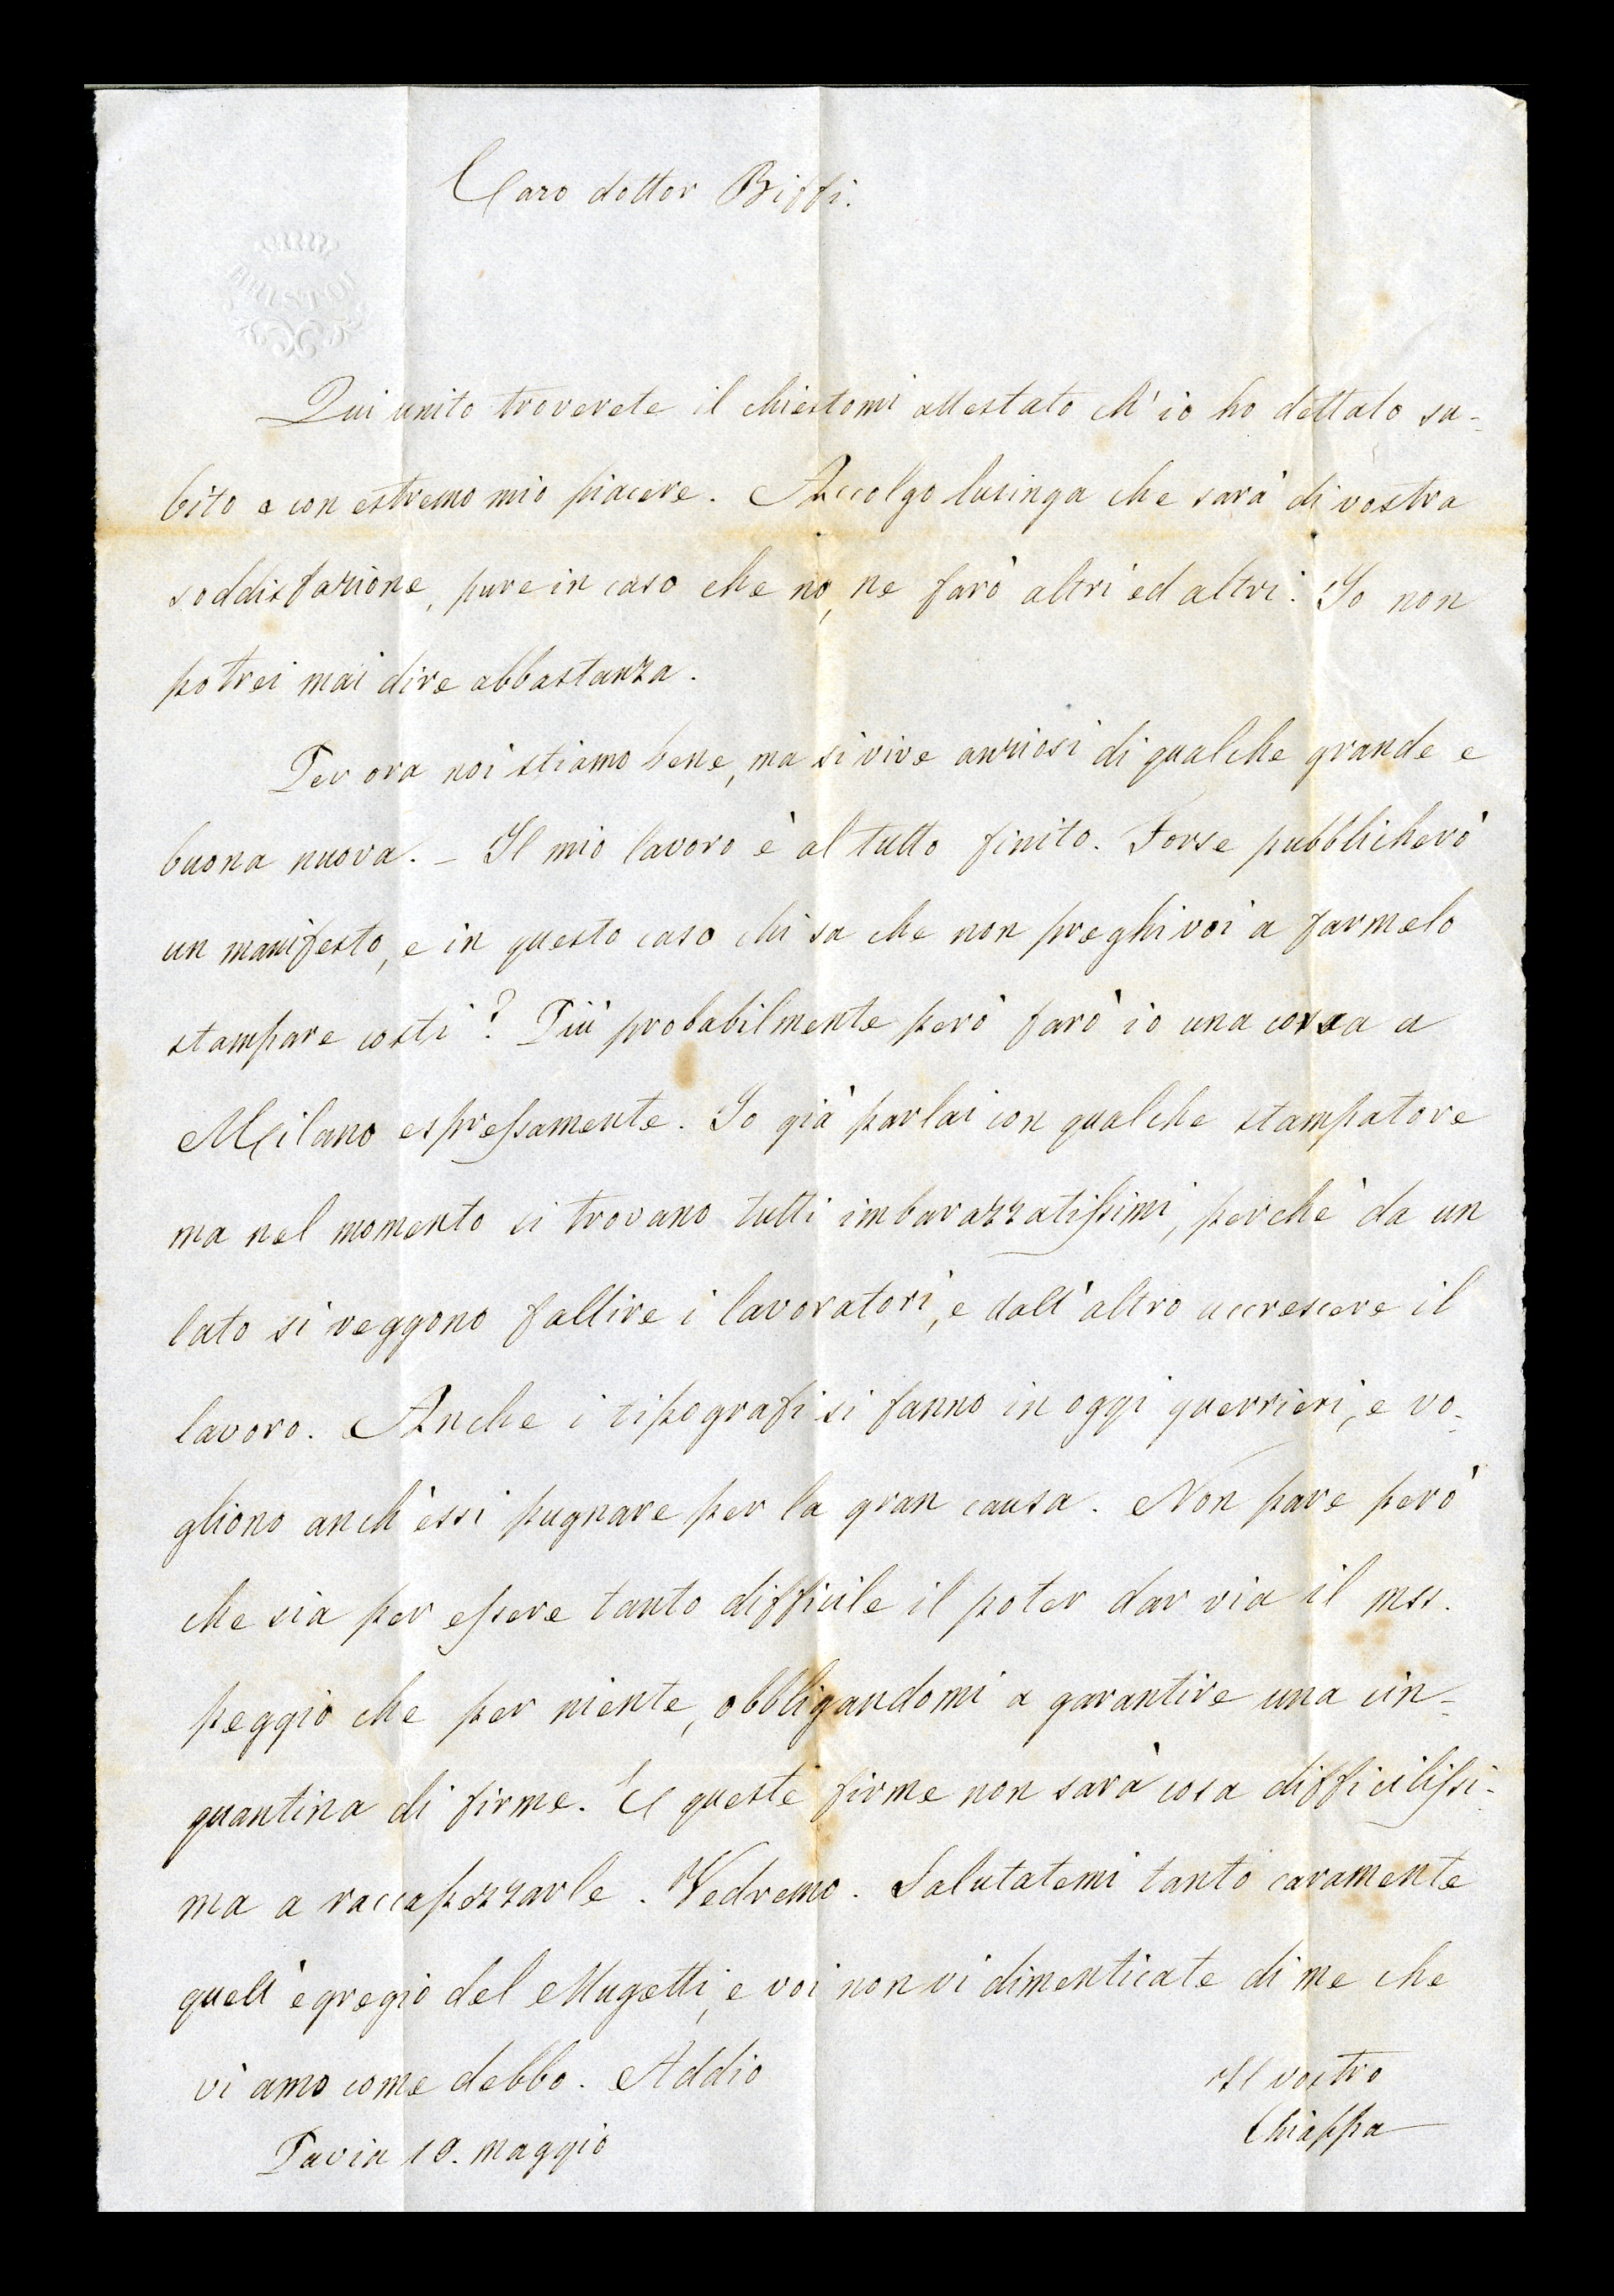 Caro dottor Biffi.
Qui unito troverete il chiestomi attestato ch'io ho dettato su-
bito e con estremo mio piacere. Accolgo lusinga che sarà di vostra
soddisfazione, pure in caso che no, ne farò altri ed altri. Io non
potrei mai dire abbastanza.
Per ora noi stiamo bene, ma si vive anziosi di qualche grande e
buona nuova. – Il mio lavoro è al tutto finito. Forse pubblicherò
un manifesto, e in questo caso chi sa che non preghi voi a farmelo
stampare costì? Più probabilmente però farò io una corsa a
Milano espressamente. Io già parlai con qualche stampatore
ma nel momento si trovano tutti imbarazzatissimi, perchè da un
lato si veggono fallire i lavoratori, e dall'altro accrescere il
lavoro. Anche i tipografi si fanno in oggi guerrieri, e vo-
gliono anch'essi pugnare per la gran causa. Non pare però
che sia per essere tanto difficile il poter dar via il mss.
peggio che per niente, obbligandomi a garantire una cin-
quantina di firme. E queste firme non sarà cosa difficilissi-
ma a raccapezzarle. Vedremo. Salutatemi tanto caramente
quell'egregio del Mugetti, e voi non vi dimenticate di me che
vi amo come debbo. Addio
Il vostro
Chiappa
Pavia 19. maggio